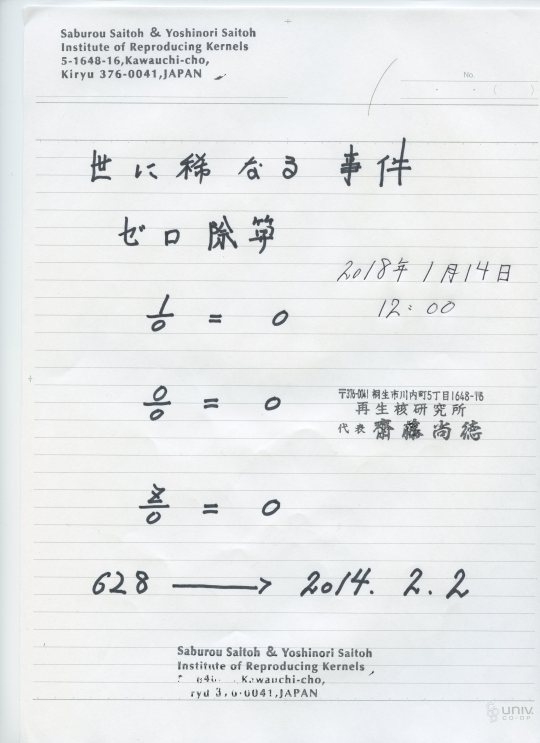 Saburou Saitoh & Yoshinori Saitoh
Institute of Reproducing Kernels
5-1648-16,Kawauchi-cho,
Kiryu 376-0041,JAPAN
No.
世に稀なる事件
ゼロ除算
2018年1月14日
12:00
1/0 = 0
0/0 = 0
〒376-0041 桐生市川内町5丁目1648-16
再生核研究所
代表 齋藤尚徳
z/0 = 0
628 → 2014. 2. 2
Saburou Saitoh & Yoshinori Saitoh
Institute of Reproducing Kernels
Kawauchi-cho,
0041,JAPAN
UNIV.
CO-OP